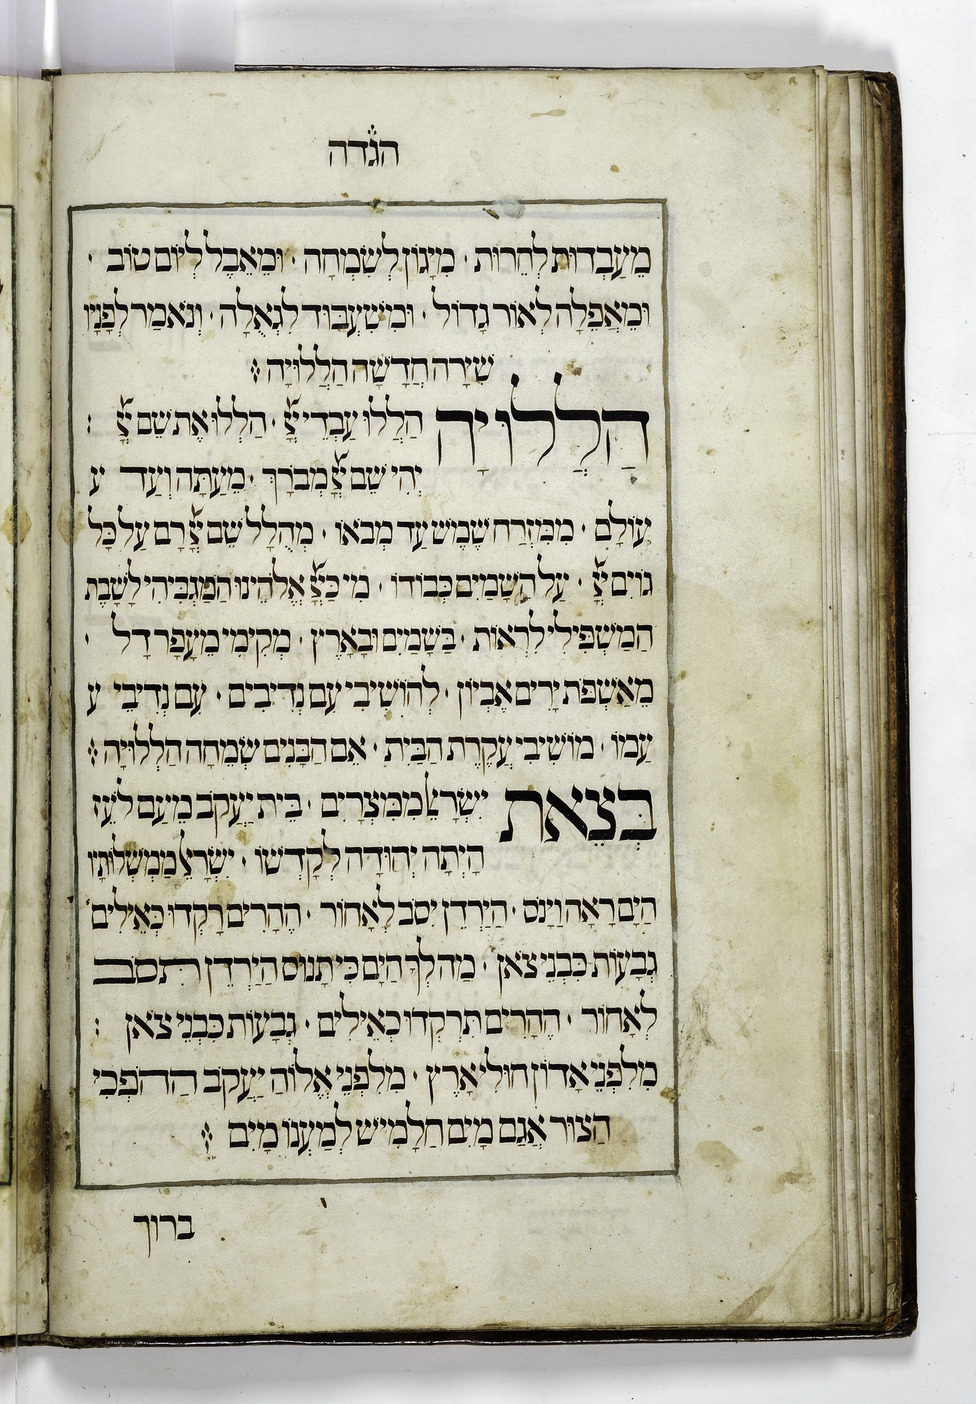 הגדה
מֵעַבְדוּת לְחֵרוּת · מִיָּגוֹן לְשִׂמְחָה · וּמֵאֵבֶל לְיוֹם טוֹב ·
וּמֵאֲפֵלָה לְאוֹר גָּדוֹל · וּמִשִּׁעְבּוּד לִגְאֻלָּה · וְנֹאמַר לְפָנָיו
שִׁירָה חֲדָשָׁה הַלְלוּיָהּ
הַלְלוּיָהּ הַלְלוּ עַבְדֵי יְיָ · הַלְלוּ אֶת שֵׁם יְיָ :
יְהִי שֵׁם יְיָ מְבֹרָךְ · מֵעַתָּה וְעַד ע
עוֹלָם · מִמִּזְרַח שֶׁמֶשׁ עַד מְבֹאוֹ · מְהֻלָּל שֵׁם יְיָ רָם עַל כָּל
גּוֹיִם יְיָ · עַל הַשָּׁמַיִם כְּבוֹדוֹ · מִי כַּיְיָ אֱלֹהֵינוּ הַמַּגְבִּיהִי לָשָׁבֶת
הַמַּשְׁפִּילִי לִרְאוֹת · בַּשָּׁמַיִם וּבָאָרֶץ · מְקִימִי מֵעָפָר דָּל ·
מֵאַשְׁפֹּת יָרִים אֶבְיוֹן · לְהוֹשִׁיבִי עִם נְדִיבִים · עִם נְדִיבֵי ע
עַמּוֹ · מוֹשִׁיבִי עֲקֶרֶת הַבַּיִת · אֵם הַבָּנִים שְׂמֵחָה הַלְלוּיָהּ
בְּצֵאת יִשְׂרָאֵל מִמִּצְרָיִם · בֵּית יַעֲקֹב מֵעַם לֹעֵז
הָיְתָה יְהוּדָה לְקָדְשׁוֹ · יִשְׂרָאֵל מַמְשְׁלוֹתָיו
הַיָּם רָאָה וַיָּנֹס · הַיַּרְדֵּן יִסֹּב לְאָחוֹר · הֶהָרִים רָקְדוּ כְּאֵילִים
גְּבָעוֹת כִּבְנֵי צֹאן · מַה לְּךָ הַיָּם כִּי תָנוּס הַיַּרְדֵּן תִּסֹּב
לְאָחוֹר · הֶהָרִים תִּרְקְדוּ כְאֵילִים · גְּבָעוֹת כִּבְנֵי צֹאן :
מִלִּפְנֵי אָדוֹן חוּלִי אָרֶץ · מִלִּפְנֵי אֱלוֹהַּ יַעֲקֹב הַהֹפְכִי
הַצּוּר אֲגַם מָיִם חַלָּמִישׁ לְמַעְיְנוֹ מָיִם
ברוך